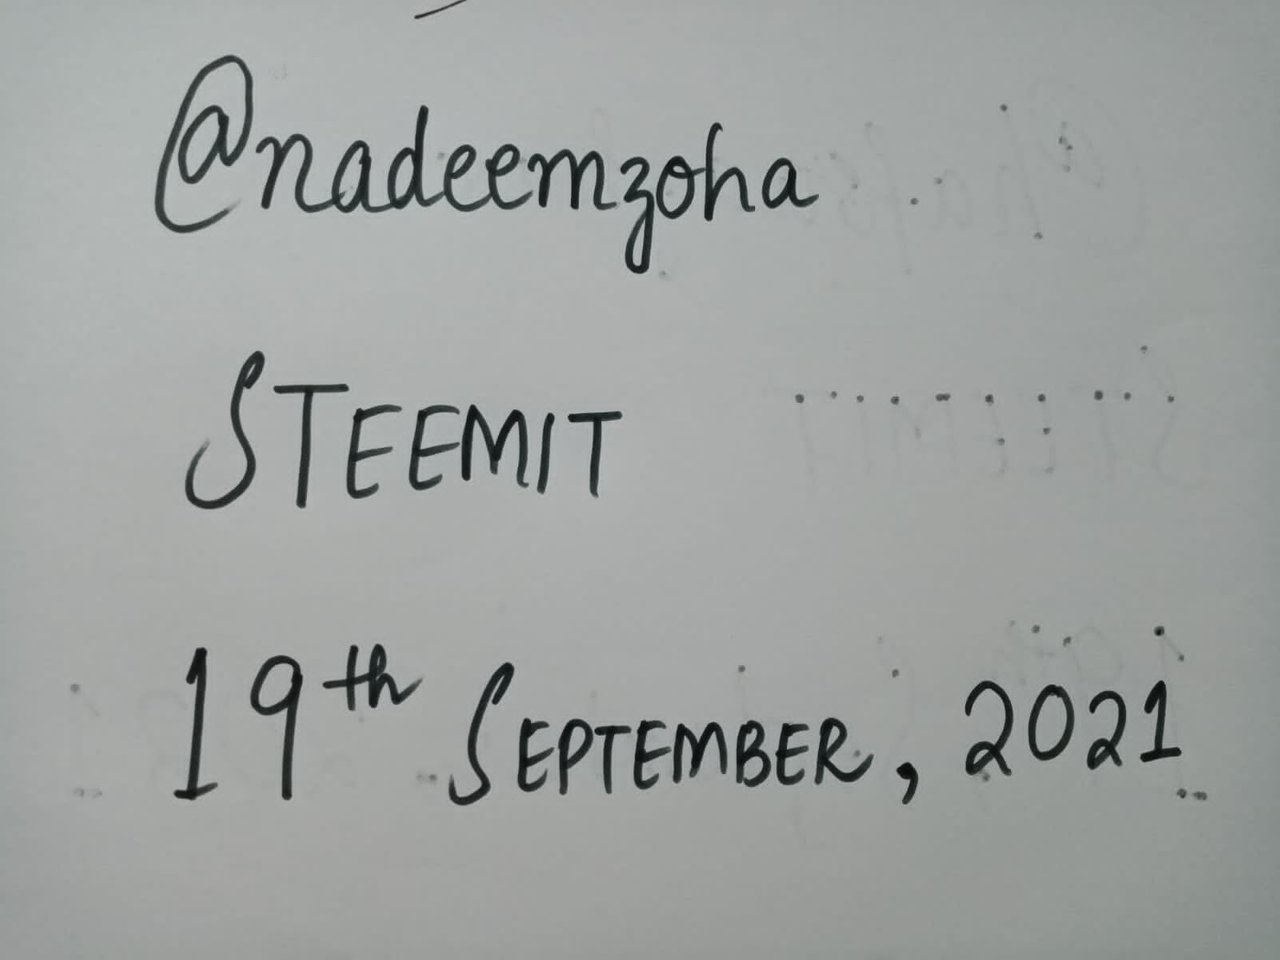 @nadeemzoha
STEEMIT
19th SEPTEMBER, 2021